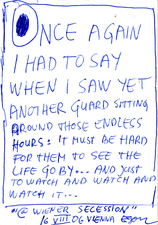 ONCE AGAIN
I HAD TO SAY
WHEN I SAW YET
ANOTHER GUARD SITTING
AROUND THOSE ENDLESS
HOURS: IT MUST BE HARD
FOR THEM TO SEE THE
LIFE GO BY... AND JUST
TO WATCH AND WATCH AND
WATCH IT...
"@ WIENER SECESSION"
VIII 06 VIENNA